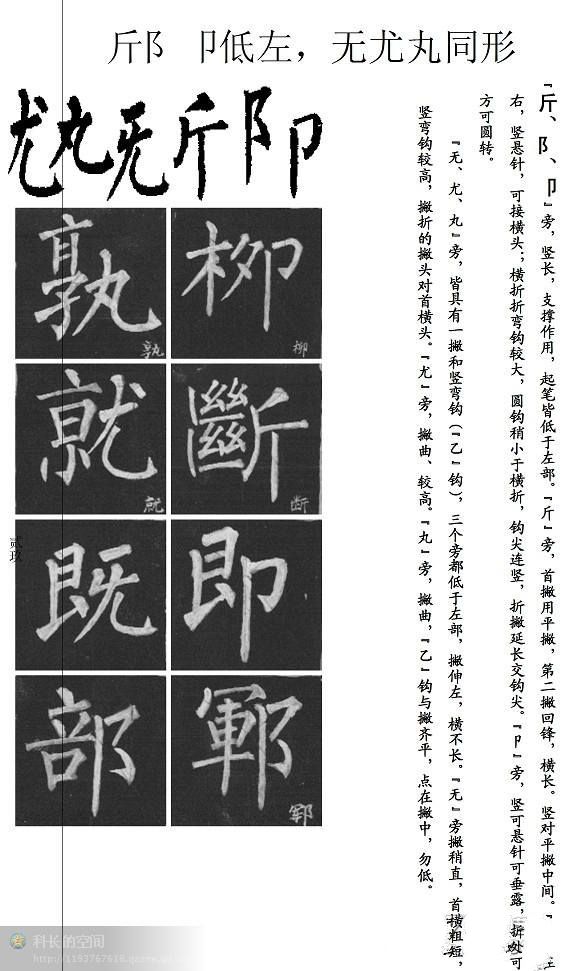 斤阝 卩低左，无尤丸同形
尤丸无斤阝卩
『斤、阝、卩』旁，竖长，支撑作用，起笔皆低于左部。『斤』旁，首撇用平撇，第二撇回锋，横长。竖对平撇中间。『
右，竖悬针，可接横头；横折折弯钩较大，圆钩稍小于横折，钩尖连竖，折撇延长交钩尖。『卩』旁，竖可悬针可垂露，折处可
方可圆转。
『无、尤、丸』旁，皆具有一撇和竖弯钩（『乙』钩），三个旁都低于左部，撇伸左，横不长。『无』旁撇稍直，首横粗短，
竖弯钩较高，撇折的撇头对首横头。『尤』旁，撇曲、较高。『丸』旁，撇曲，『乙』钩与撇齐平，点在撇中，勿低。
柳 柳
孰 孰
斷 断
就 就
即
既
鄆 郓
部
贰玖
科长的空间